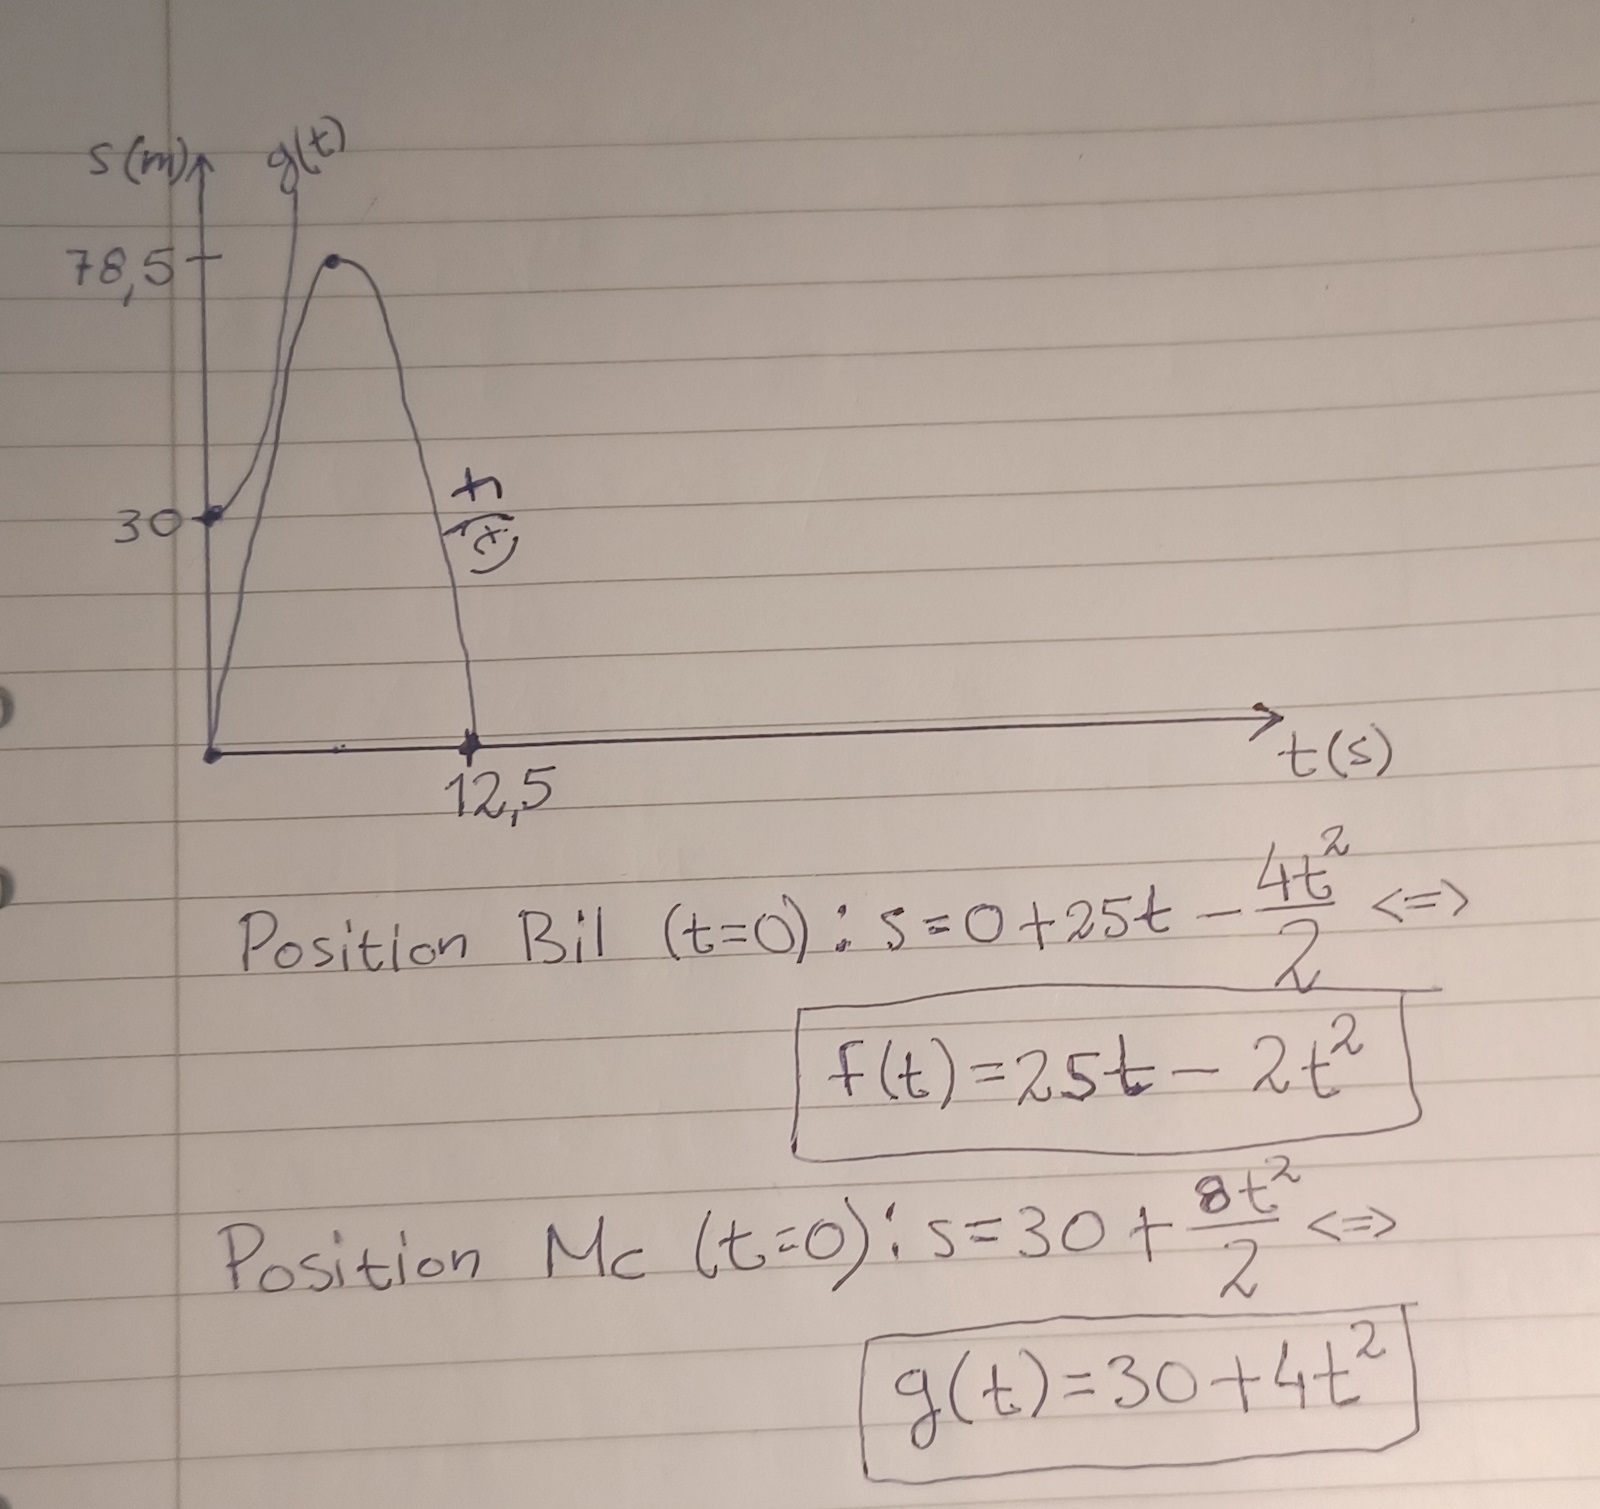 s(m) g(t)
78,5
30
f(t)
12,5
t(s)
Position Bil (t=0): s=0+25t - 4t²/2 <=>
f(t)=25t - 2t²
Position Mc (t=0): s=30 + 8t²/2 <=>
g(t)=30+4t²